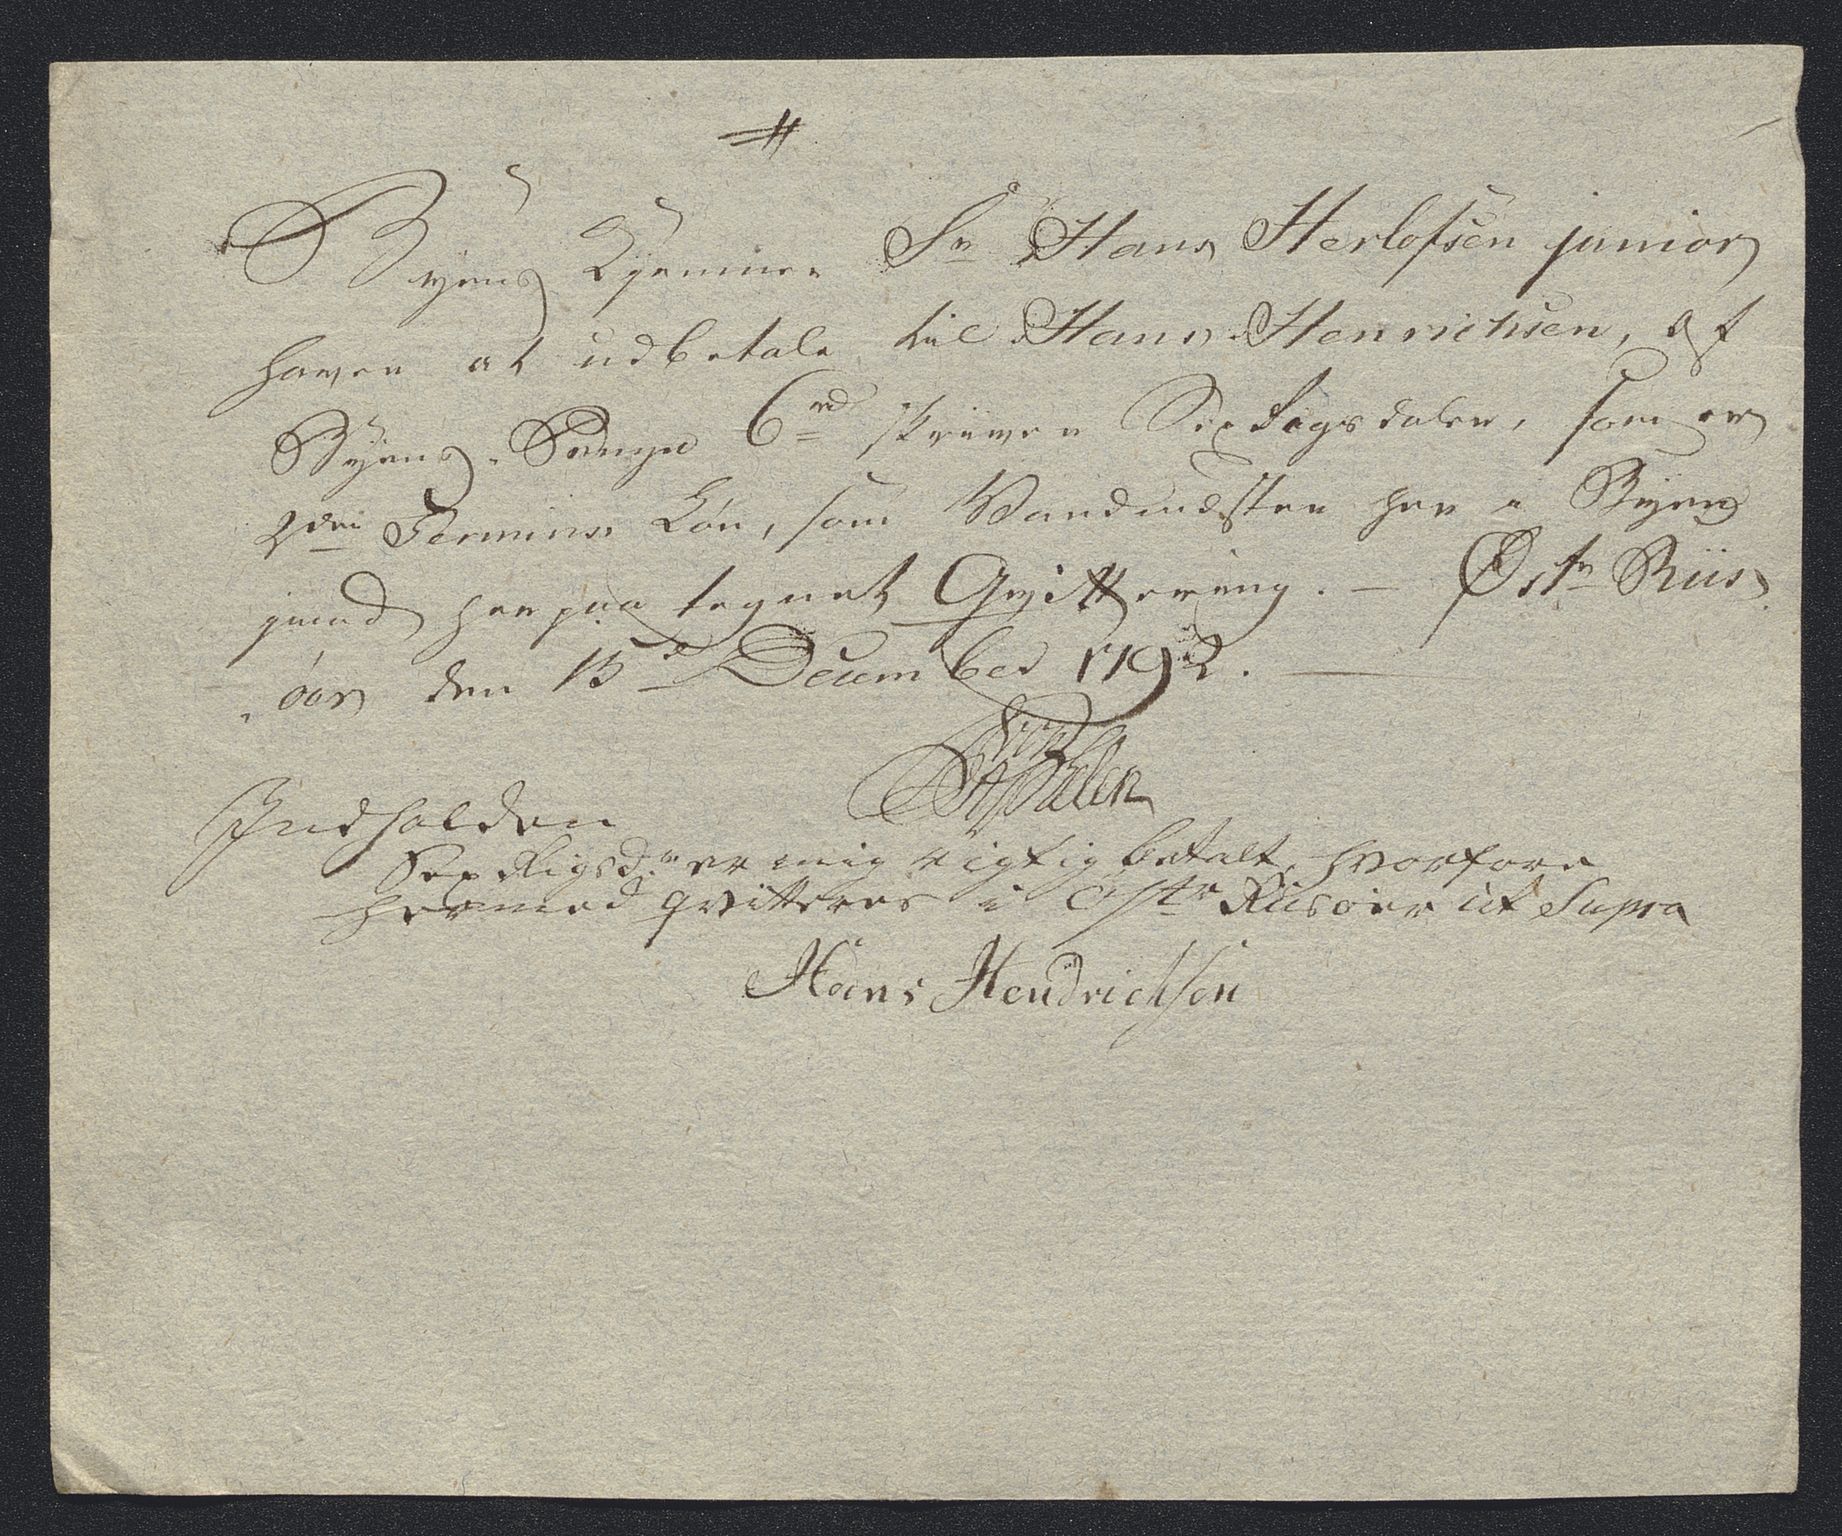 Byens Kjemner Sr Hans Herlofsen junior
haver at udbetale til Hans Henrichsen, af
Byens Penge 6 rd skriver Sex Rigsdaler, som er
2den Termins Løn, som Vandmæster her i Byen
imod her paa tegnet Qvittering. — Østr Riis-
öer den 15de December 1792. —
Indholdene
Sex Rigsdr er mig rigtig betalt, hvorfore
hermed qvitteres i Østr Riisöer ut Supra
Hans Hendrichsen